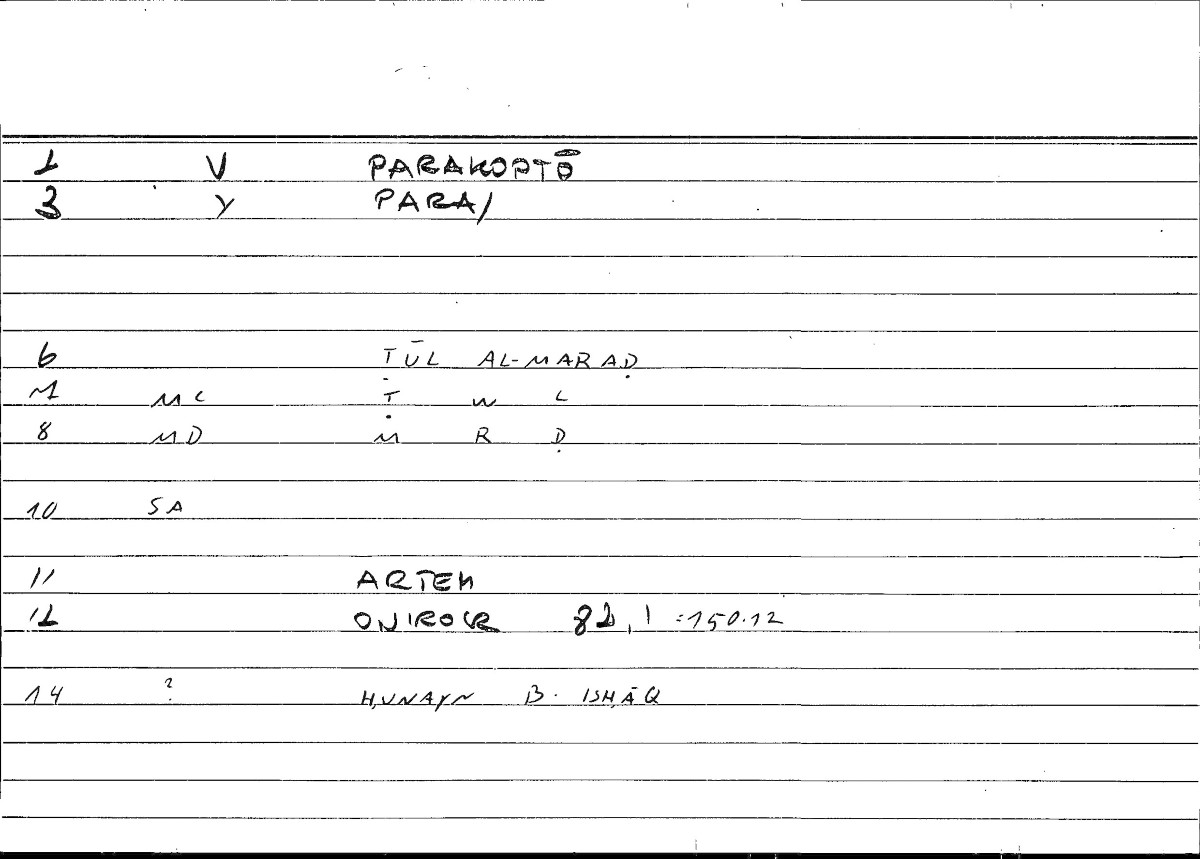 1 V PARAKOPTŌ
3 Y PARA/
6 ṬŪL AL-MARAḌ
7 MC Ṭ W L
8 MD M R Ḍ
10 SA
11 ARTEM
12 ONIROCR 82,1 =150.12
14 ? ḤUNAYN B. ISḤĀQ